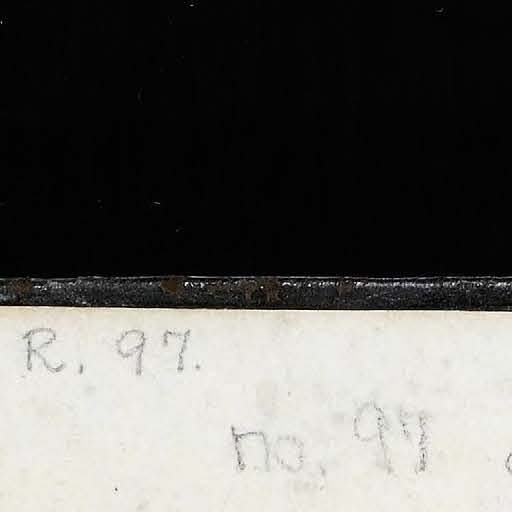 R. 97.
no. 97